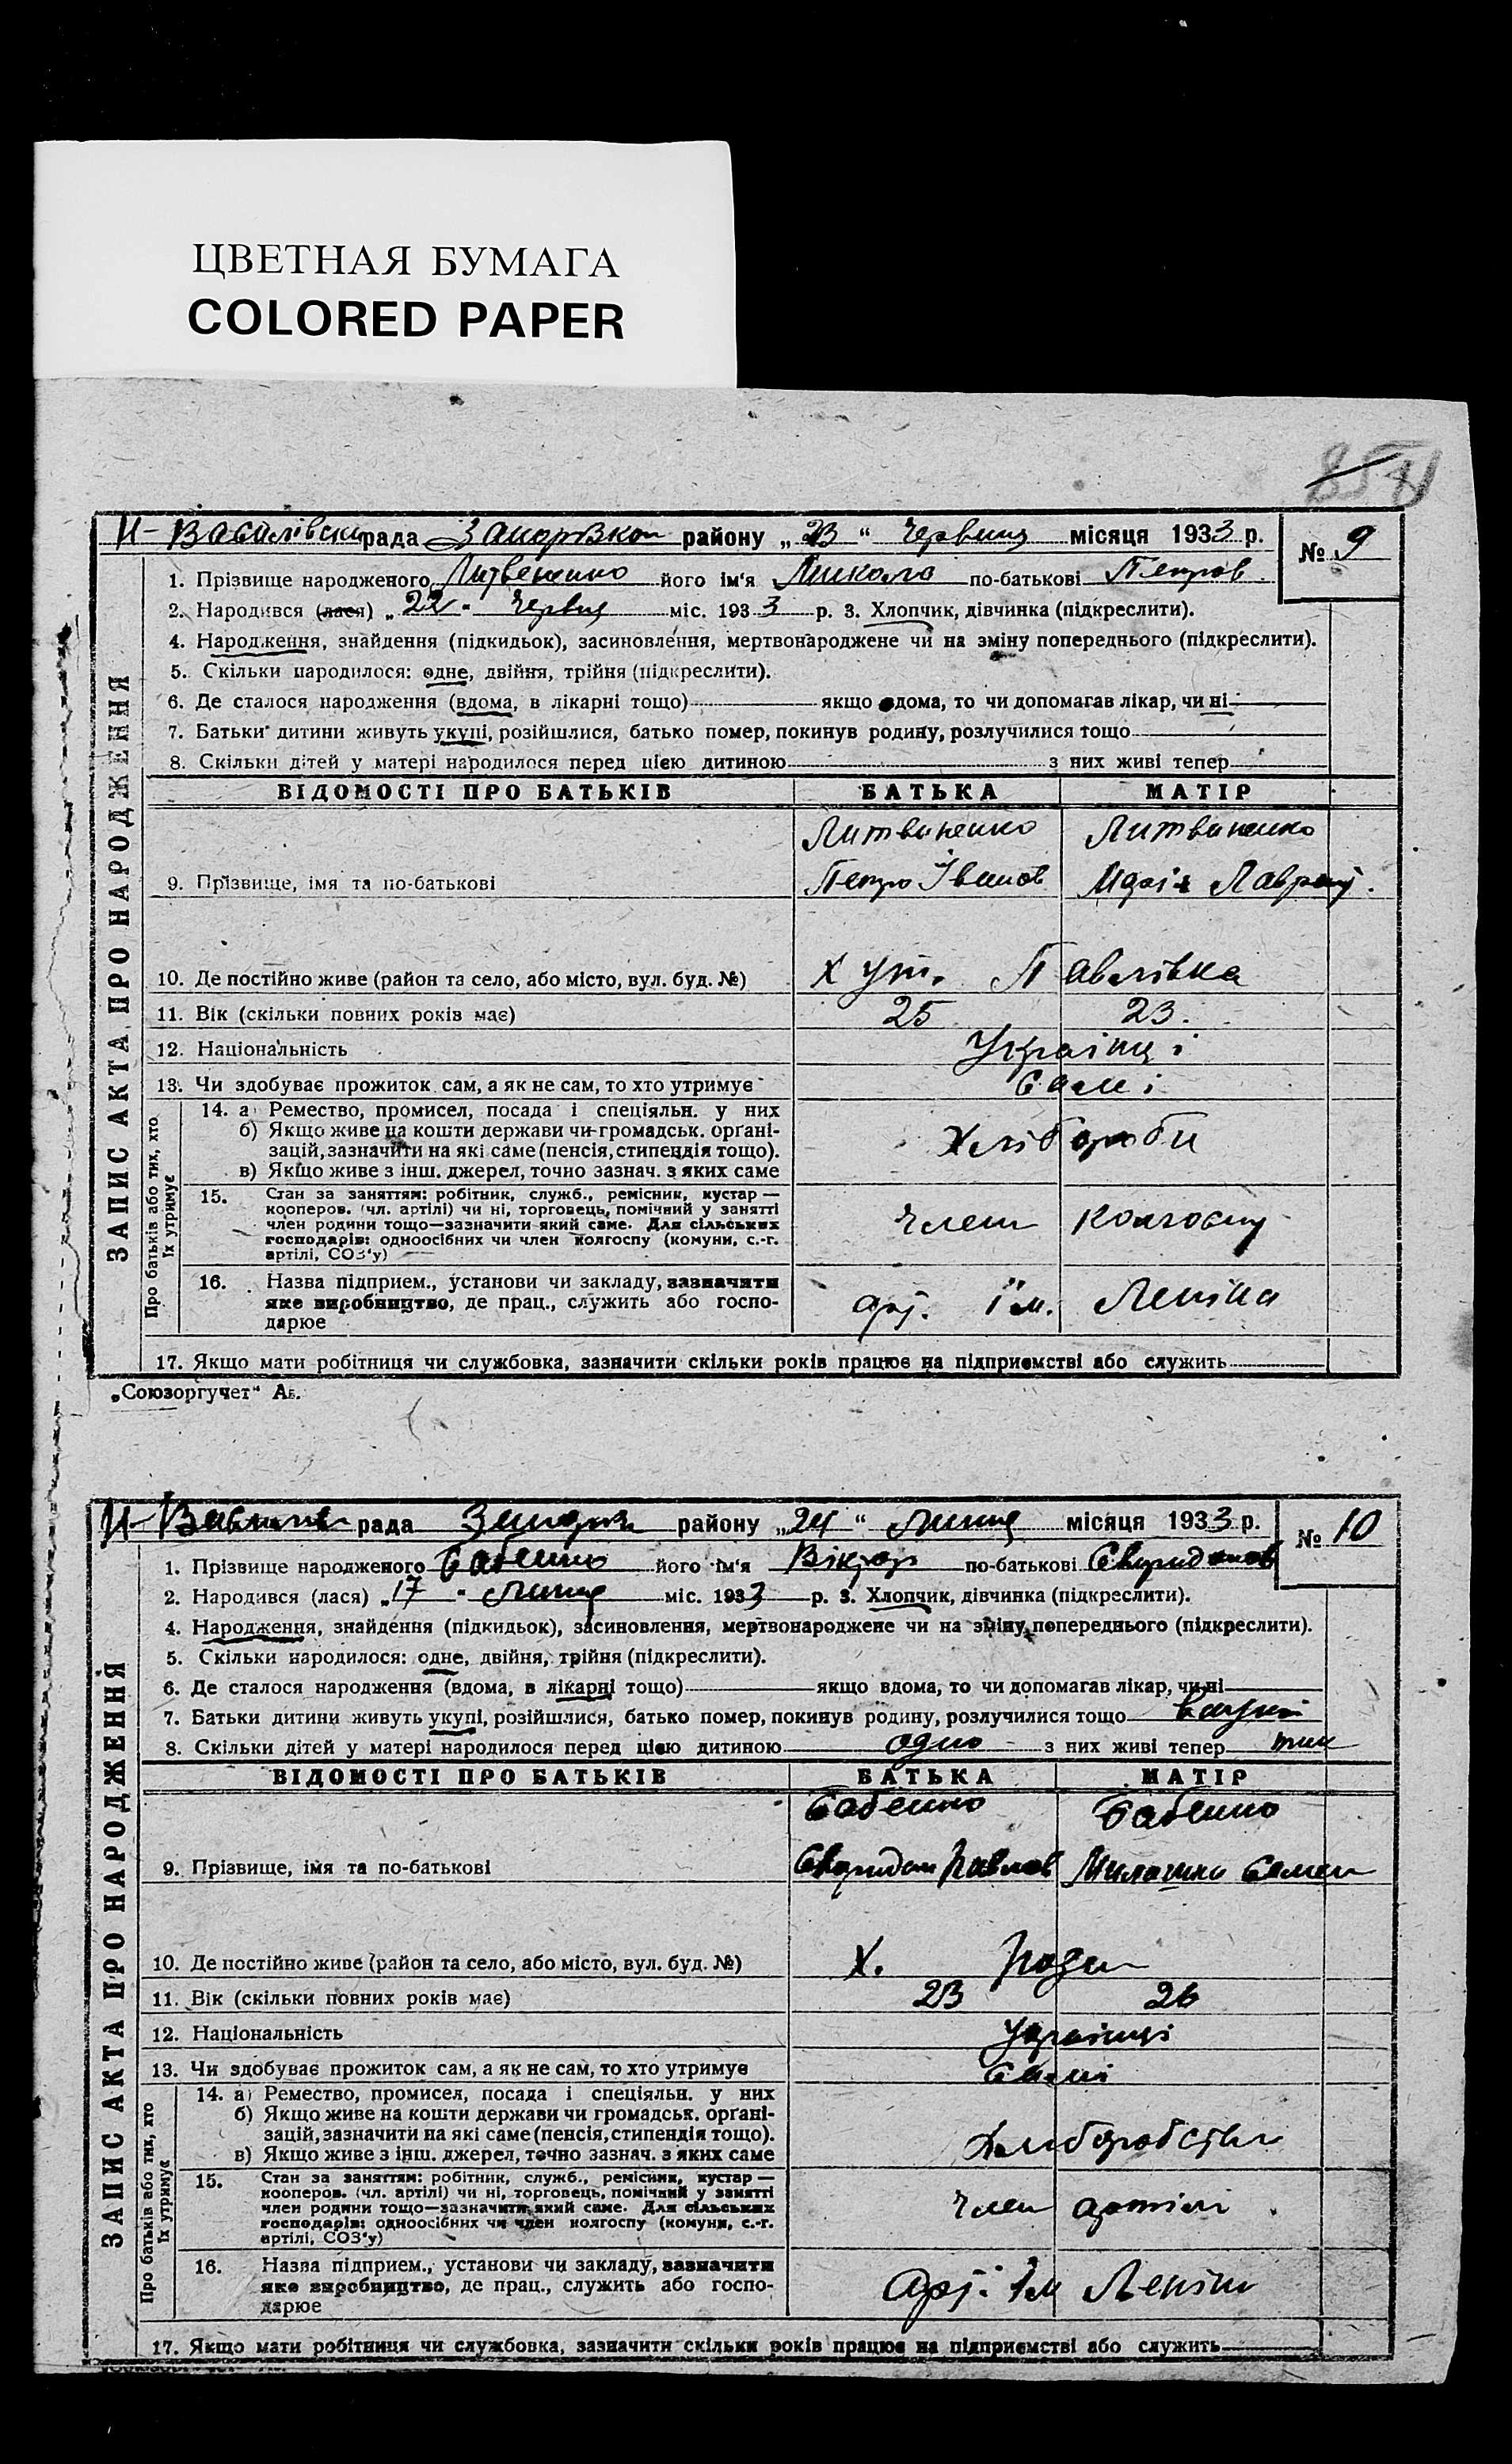 ЦВЕТНАЯ БУМАГА
COLORED PAPER
Н-Василівськ рада Запорізкои району „23“ Червня місяця 1933 р.
№ 9
1. Прізвище народженого Литвененко його ім'я Микола по-батькові Петров.
2. Народився (лася) „22“ Червня міс. 1933 р. 3. Хлопчик, дівчинка (підкреслити).
4. Народження, знайдення (підкидьок), засиновлення, мертвонароджене чи на зміну попереднього (підкреслити).
5. Скільки народилося: одне, двійня, трійня (підкреслити).
6. Де сталося народження (вдома, в лікарні тощо) якщо вдома, то чи допомагав лікар, чи ні
7. Батьки дитини живуть укупі, розійшлися, батько помер, покинув родину, розлучилися тощо
8. Скільки дітей у матері народилося перед цією дитиною з них живі тепер
ЗАПИС АКТА ПРО НАРОДЖЕННЯ
ВІДОМОСТІ ПРО БАТЬКІВ БАТЬКА МАТІР
Литвиненко Литвиненко
9. Прізвище, імя та по-батькові Петро Іванов Марія Лаврент.
10. Де постійно живе (район та село, або місто, вул. буд. №) Хут. Павлівка
11. Вік (скільки повних років має) 25 23.
12. Національність Українці
13. Чи здобуває прожиток сам, а як не сам, то хто утримує Самі
Про батьків або тих, хто їх утримує
14. а) Ремество, промисел, посада і спеціяльн. у них
б) Якщо живе на кошти держави чи громадськ. орґані-
зацій, зазначити на які саме (пенсія, стипендія тощо).
в) Якщо живе з інш. джерел, точно зазнач. з яких саме
Хлібороби
15. Стан за заняттям: робітник, служб., ремісник, кустар —
кооперов. (чл. артілі) чи ні, торговець, помічний у занятті
член родини тощо—зазначити який саме. Для сільських
господарів: одноосібних чи член колгоспу (комуни, с.-г.
артілі, СОЗ'у)
Член колгоспу
16. Назва підприєм., установи чи закладу, зазначити
яке виробництво, де прац., служить або госпо-
дарює
арт. ім. Леніна
17. Якщо мати робітниця чи службовка, зазначити скільки років працює на підприємстві або служить
„Союзоргучет“
Н-Василів рада Запоріз району „24“ Липня місяця 1933 р.
№ 10
1. Прізвище народженого Бабенко його ім'я Віктор по-батькові Свиридонов
2. Народився (лася) „17“ Липня міс. 1933 р. 3. Хлопчик, дівчинка (підкреслити).
4. Народження, знайдення (підкидьок), засиновлення, мертвонароджене чи на зміну попереднього (підкреслити).
5. Скільки народилося: одне, двійня, трійня (підкреслити).
6. Де сталося народження (вдома, в лікарні тощо) якщо вдома, то чи допомагав лікар, чи ні
7. Батьки дитини живуть укупі, розійшлися, батько помер, покинув родину, розлучилися тощо
8. Скільки дітей у матері народилося перед цією дитиною одно з них живі тепер
ЗАПИС АКТА ПРО НАРОДЖЕННЯ
ВІДОМОСТІ ПРО БАТЬКІВ БАТЬКА МАТІР
Бабенко Бабенко
9. Прізвище, імя та по-батькові Свиридон Павлов Милашка Семен
10. Де постійно живе (район та село, або місто, вул. буд. №) Х.
11. Вік (скільки повних років має) 23 26
12. Національність Українці
13. Чи здобуває прожиток сам, а як не сам, то хто утримує Самі
Про батьків або тих, хто їх утримує
14. а) Ремество, промисел, посада і спеціяльн. у них
б) Якщо живе на кошти держави чи громадськ. орґані-
зацій, зазначити на які саме (пенсія, стипендія тощо).
в) Якщо живе з інш. джерел, точно зазнач. з яких саме
Хліборобство
15. Стан за заняттям: робітник, служб., ремісник, кустар —
кооперов. (чл. артілі) чи ні, торговець, помічний у занятті
член родини тощо—зазначити який саме. Для сільських
господарів: одноосібних чи член колгоспу (комуни, с.-г.
артілі, СОЗ'у)
Член артілі
16. Назва підприєм., установи чи закладу, зазначити
яке виробництво, де прац., служить або госпо-
дарює
Арт. ім Леніна
17. Якщо мати робітниця чи службовка, зазначити скільки років працює на підприємстві або служить